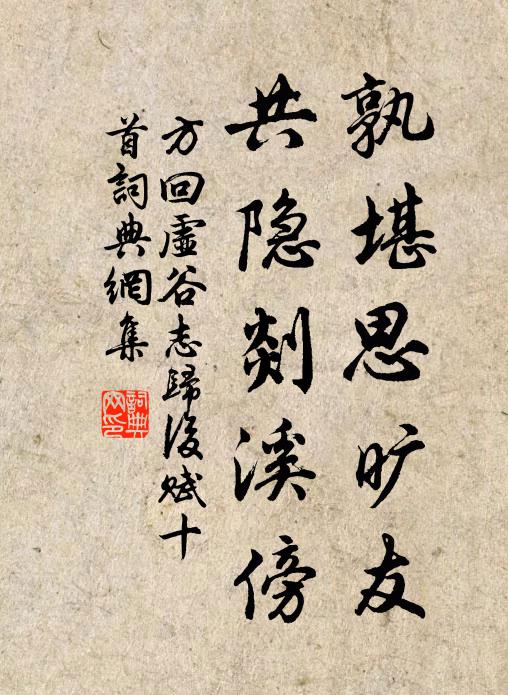 孰堪思旷友
共隐剡溪傍
方回虛谷志歸後賦十
首詞典網集
詞典
网印